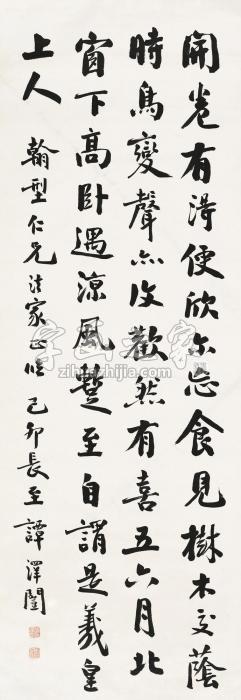 開卷有得便欣尔忘食見樹木交蔭
時鳥變聲亦復歡然有喜五六月北
窗下高卧遇涼風暫至自謂是羲皇
上人 翰型仁兄法家正腕 己卯長至 譚澤闓
字画之家
zihuazhijia.com